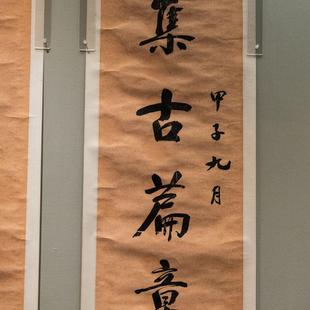 甲子九月
集古篇章